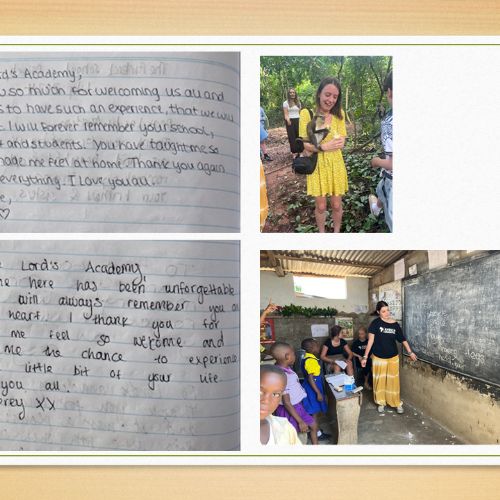 rd's Academy,
u so much for welcoming us all and
s to have such an experience, that we will
I will forever remember your school,
and students. You have taught me so
made me feel at home. Thank you again
everything. I love you all.
e,
♡
e Lord's Academy,
me here has been unforgettable
will always remember you
heart. I thank you for
me feel so welcome and
me the chance to experience
little bit of your life
you all.
rey xx
AFRICA